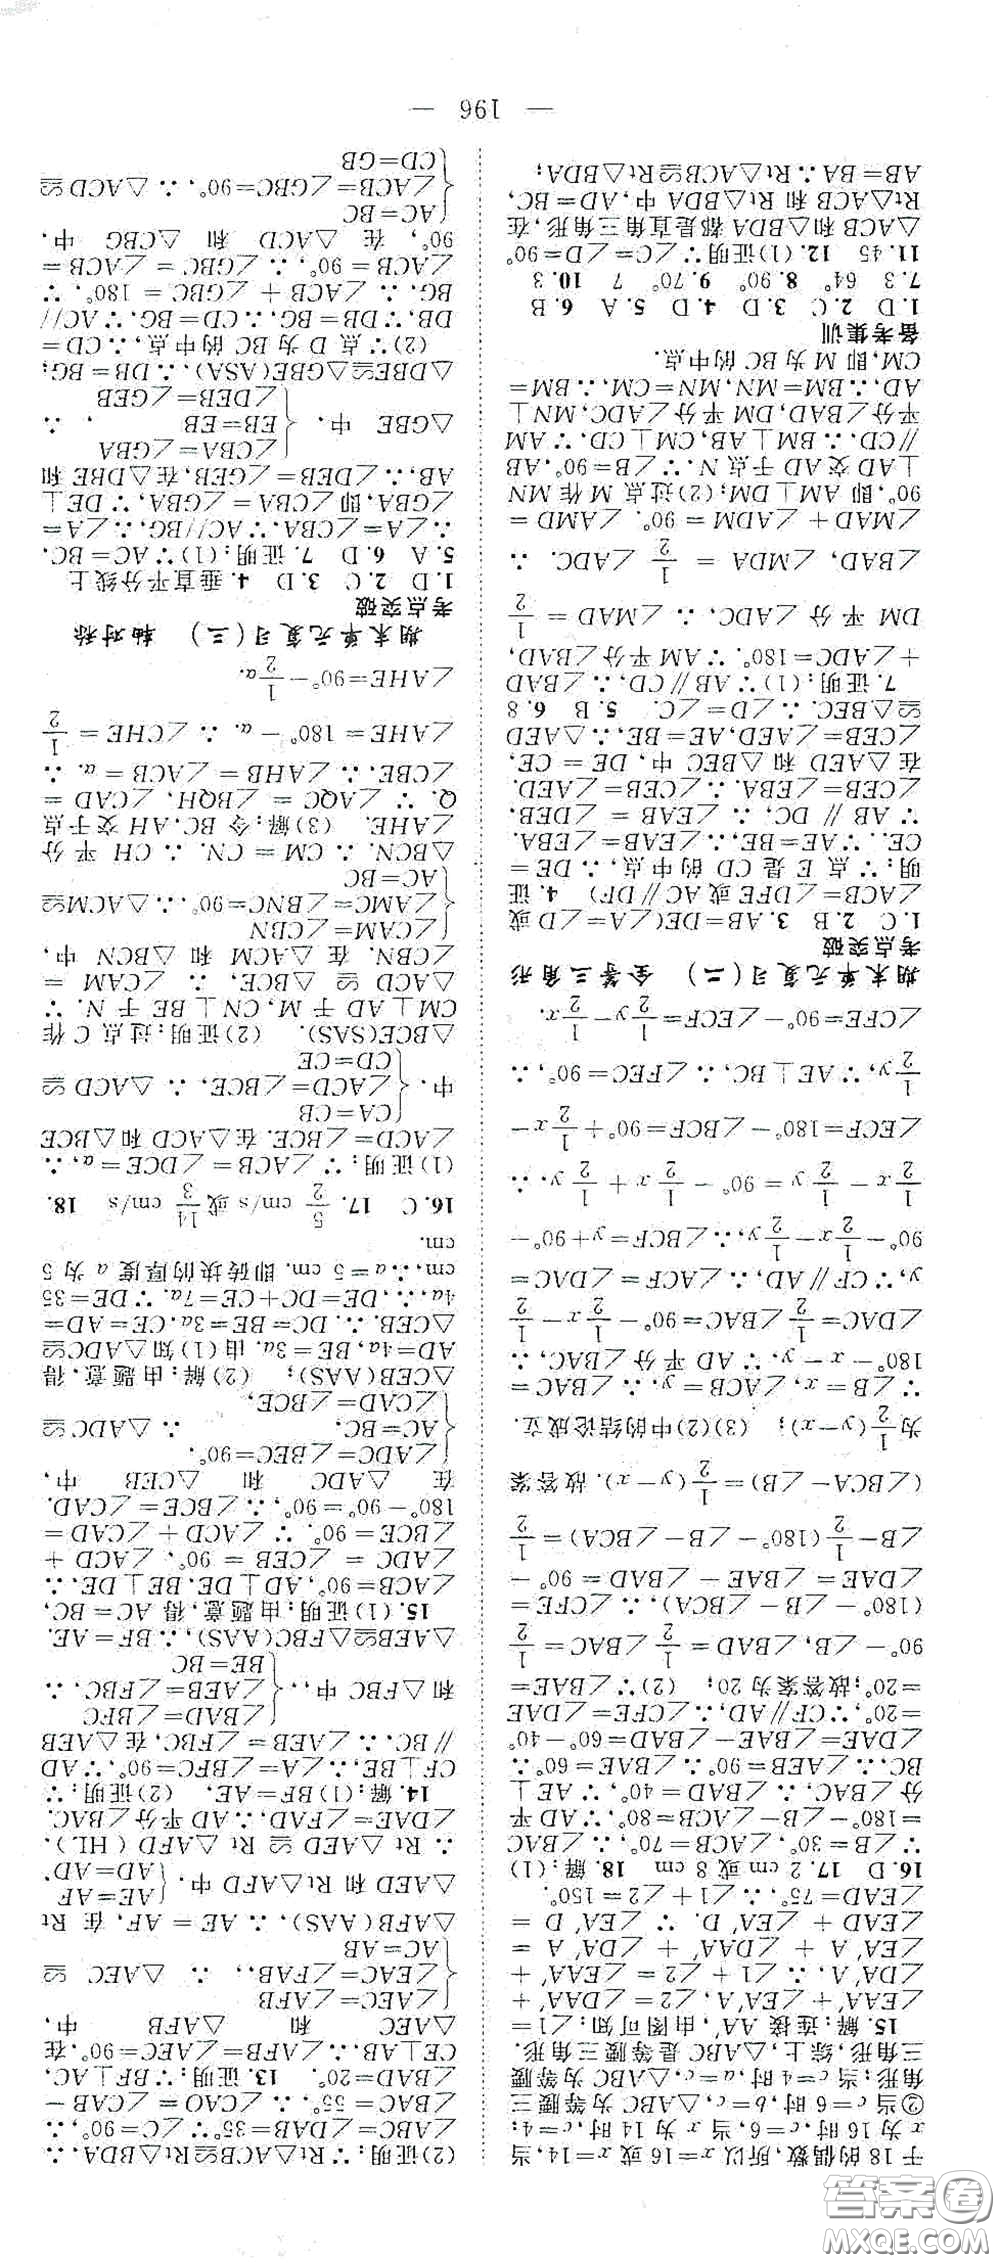 于18的偶数,所以x=16或x=14,当
x为16时,c=6,当x为14时,c=4;
②当c=6时,b=c,△ABC为等腰三
角形;当c=4时,a=c,△ABC为等腰
三角形,综上,△ABC是等腰三角形.
15. 解:连接AA′,由图可知:∠1=
∠EAA′+∠EA′A,∠2=∠DAA′+
∠DA′A,∴∠1+∠2=∠EAA′+
∠EA′A+∠DAA′+∠DA′A=
∠EAD+∠EA′D.∵∠EA′D=
∠EAD=75°,∴∠1+∠2=150°.
16. D 17. 2 cm或8 cm 18. 解:(1)
∵∠B=30°,∠ACB=70°,∴∠BAC
=180°-∠B-∠ACB=80°,∵AD平
分∠BAC,∴∠BAD=40°,∵AE⊥
BC,∴∠AEB=90°,∴∠BAE=60°,∴
∠DAE=∠BAE-∠BAD=60°-40°
=20°,∵CF//AD,∴∠CFE=∠DAE
=20°;故答案为20; (2)∵∠BAE=
90°-∠B,∠BAD=1/2∠BAC=1/2
(180°-∠B-∠BCA),∴∠CFE=
∠DAE=∠BAE-∠BAD=90°-
∠B-1/2(180°-∠B-∠BCA)=1/2
(∠BCA-∠B)=1/2(y-x).故答案
为1/2(y-x); (3)(2)中的结论成立.
∵∠B=x,∠ACB=y,∴∠BAC=
180°-x-y,∵AD平分∠BAC,∴
∠DAC=1/2∠BAC=90°-1/2x-1/2
y,∵CF//AD,∴∠ACF=∠DAC=
90°-1/2x-1/2y,∴∠BCF=y+90°-
1/2x-1/2y=90°-1/2x+1/2y,∴
∠ECF=180°-∠BCF=90°+1/2x-
1/2y,∵AE⊥BC,∴∠FEC=90°,∴
∠CFE=90°-∠ECF=1/2y-1/2x.
期末单元复习(二) 全等三角形
考点突破
1. C 2. B 3. AB=DE(∠A=∠D或
∠ACB=∠DFE或AC//DF) 4. 证
明:∵点E是CD的中点,∴DE=
CE.∵AE=BE,∴∠EAB=∠EBA.
∵AB//DC,∴∠EAB=∠DEB,
∠CEB=∠EBA.∴∠CEB=∠AED.
在△AED和△BEC中,DE=CE,
∠CEB=∠AED,AE=BE,∴△AED
≌△BEC.∴∠D=∠C. 5. B 6. 8
7. 证明:(1)∵AB//CD,∴∠BAD
+∠ADC=180°.∵AM平分∠BAD,
DM平分∠ADC,∴∠MAD=1/2
∠BAD,∠MDA=1/2∠ADC.∴
∠MAD+∠ADM=90°.∠AMD=
90°,即AM⊥DM;(2)过点M作MN
⊥AD交AD于点N.∵∠B=90°,AB
//CD.∴BM⊥AB,CM⊥CD.∵AM
平分∠BAD,DM平分∠ADC,MN⊥
AD,∴BM=MN,MN=CM,∴BM=
CM,即M为BC的中点.
备考集训
1. D 2. C 3. D 4. D 5. A 6. B
7. 3 64° 8. 90° 9. 70° 7 10. 3
11. 45 12. (1)证明∵∠C=∠D=90°
△ACB和△BDA都是直角三角形,在
Rt△ACB和Rt△BDA中,AD=BC,
AB=BA∴Rt△ACB≌Rt△BDA;
(2)证明:∵Rt△ACB≌Rt△BDA,∴
∠ABC=∠DAB=35°∵∠C=90°,∴
∠BAC=55°,∴∠CAO=∠CAB-
∠BAD=20°. 13. 证明:∵BF⊥AC,
CE⊥AB.∴∠AFB=∠AEC=90°.在
△AEC和△AFB中,
{∠AEC=∠AFB
∠EAC=∠FAB,,∴△AEC≌
AC=AB
△AFB(AAS),∴AE=AF,在Rt
△AED和Rt△AFD中,{AE=AF
AD=AD,
∴Rt△AED≌Rt△AFD(HL),
∠DAE=∠FAD,∴AD平分∠BAC.
14. 解:(1)BF=AE. (2)证明:∵
CF⊥BE,∴∠A=∠BFC=90°.∵AD
//BC,∴∠AEB=∠FBC,在△AEB
和△FBC中,,{∠BAD=∠BFC
∠AEB=∠FBC,∴
BE=BC
△AEB≌△FBC(AAS),∴BF=AE.
15. (1)证明:由题意,得AC=BC,
∠ACB=90°,AD⊥DE,BE⊥DE,∴
∠ADC=∠CEB=90°,∠ACD+
∠BCE=90°.∵∠ACD+∠CAD=
180°-90°=90°,∴∠BCE=∠CAD.
在△ADC和△CEB中,
{∠ADC=∠BEC=90°,
AC=BC, ∴△ADC≌
∠CAD=∠BCE,
△CEB(AAS); (2)解:由题意,得
AD=4a,BE=3a.由(1)知△ADC≌
△CEB.∴.DC=BE=3a.CE=AD=
4a.∴,DE=DC+CE=7a.∵DE=35
cm,∴a=5 cm.即砖块的厚度a为5
cm.
16. C 17. 5/2 cm/s或14/3 cm/s 18.
(1)证明:∵∠ACB=∠DCE=α,∴
∠ACD=∠BCE.在△ACD和△BCE
中,{CA=CB
∠ACD=∠BCE,∴△ACD≌
CD=CE
△BCE(SAS). (2)证明:过点C作
CM⊥AD于M,CN⊥BE于N.∵
△ACD≌△BCE,∴∠CAM=
∠CBN.在△ACM和△BCN中,
{∠CAM=∠CBN
∠AMC=∠BNC=90°,∴△ACM≌
AC=BC
△BCN.∴CM=CN.∴CH平分
∠AHE. (3)解:令BC,AH交于点
Q.∵∠AQC=∠BQH,∠CAD=
∠CBE.∴∠AHB=∠ACB=α.∴
∠AHE=180°-α.∴∠CHE=1/2
∠AHE=90°-1/2α.
期末单元复习(三) 轴对称
考点突破
1. D 2. C 3. D 4. 垂直平分线上
5. A 6. D 7. 证明:(1)∵AC=BC,
∴∠A=∠CBA.∵AC//BG.∴∠A=
∠GBA,即∠CBA=∠GBA,∵DE⊥
AB,∴∠DEB=∠GEB,在△DBE和
△GBE中,{∠CBA=∠GBA
EB=EB ,∴
∠DEB=∠GEB
△DBE≌△GBE(ASA).∴DB=BG;
(2)∵点D为BC的中点,∴CD=
DB,∵DB=BG,∴CD=BG.∵AC//
BG.∴∠ACB+∠GBC=180°,∵
∠ACB=90°,∴∠GBC=∠ACB=
90°,在△ACD和△CBG中,
{AC=BC
∠ACB=∠GBC=90°,∴△ACD≌
CD=GB
— 196 —
答案圈
MXQE.COM